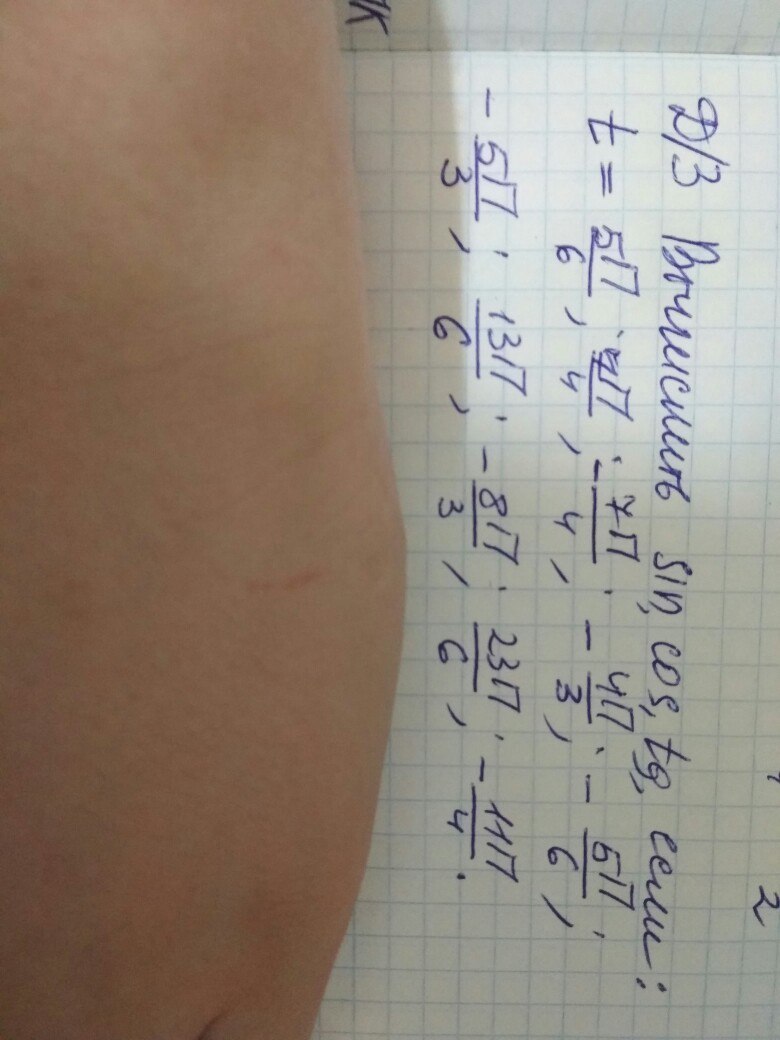 Д/З Вычислить sin, cos, tg, если:
t = 5П/6; 7П/4; -7П/4; -4П/3; -5П/6;
-5П/3; 13П/6; -8П/3; 23П/6; -11П/4.
2